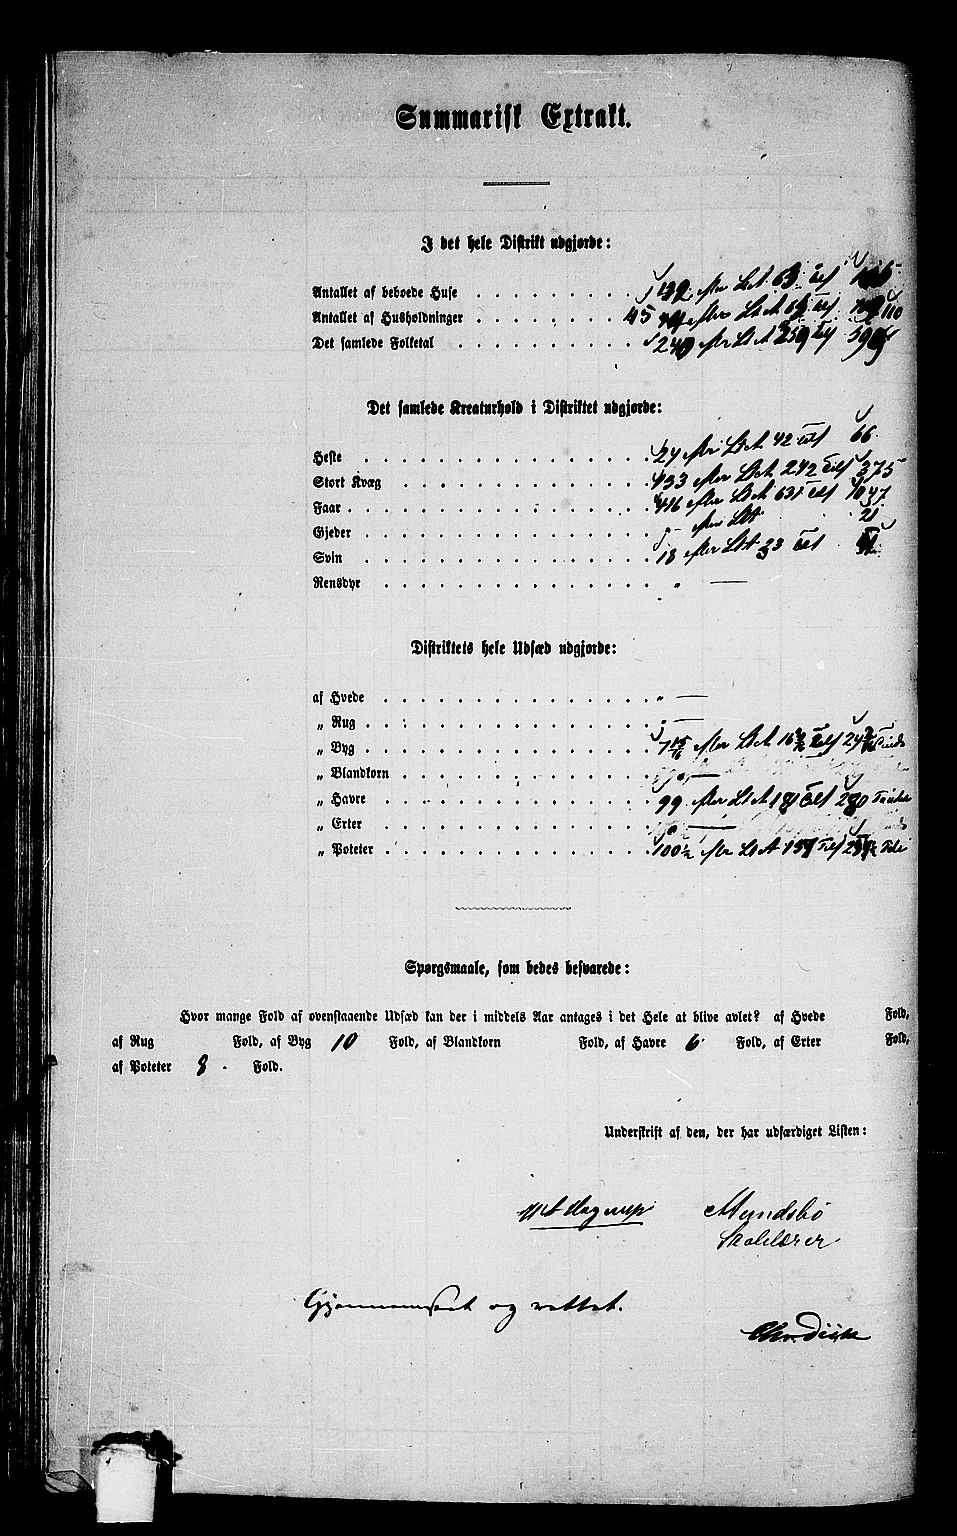 Summarisk Extrakt.
I det hele Distrikt udgjorde:
Antallet af beboede Huse
Antallet af Husholdninger 45 110
Det samlede Folketal
Det samlede Kreaturhold i Distriktet udgjorde:
Heste 24 efter Lit A 42 Till 66
Stort Kvæg 133 efter Lit A 242 Till 375
Faar 416 efter Lit A 631 Till 1047
Gjeder efter Lit 21
Svin 18 efter Lit A 33 Till
Rensdyr " —
Distriktets hele Udsæd udgjorde:
af Hvede " —
„ Rug " —
„ Byg efter Lit A Till
„ Blandkorn " —
„ Havre 99 efter Lit A 181 Till 280 Tønder
„ Erter " —
„ Poteter 100½ efter Lit A Till
Spørgsmaale, som bedes besvarede:
Hvor mange Fold af ovenstaaende Udsæd kan der i middels Aar antages i det Hele at blive avlet? af Hvede Fold,
af Rug Fold, af Byg 10 Fold, af Blandkorn Fold, af Havre 6 Fold, af Erter Fold,
af Poteter 8 Fold.
Underskrift af den, der har udfærdiget Listen:
Mundsbø
Skolelærer
Gjennemseet og rettet.